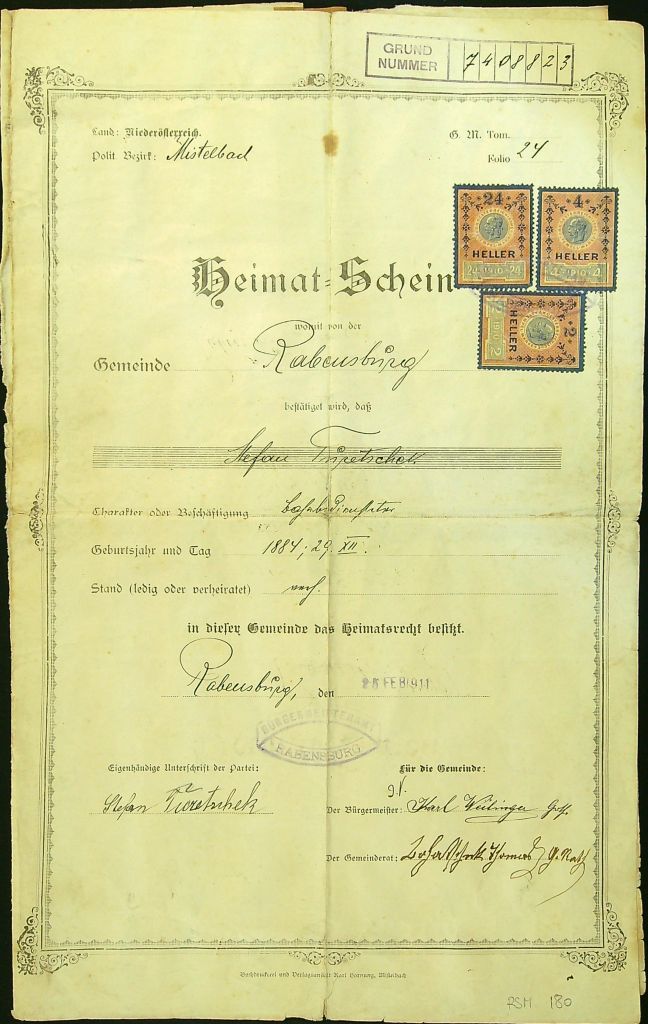 GRUND
NUMMER 7408823
Land: Niederösterreich.
G. M. Tom.
Polit. Bezirk: Mistelbach
Folio 24
24
HELLER
24 1910 24
4
HELLER
4 1910 4
Heimat-Schein
2
HELLER
2 1910 2
womit von der
Gemeinde Rabensburg
bestätiget wird, daß
Stefan Turetschek
Charakter oder Beschäftigung Bahnbediensteter
Geburtsjahr und Tag 1884; 29. XII.
Stand (ledig oder verheiratet) verh.
in dieser Gemeinde das Heimatsrecht besitzt.
Rabensburg, den 25 FEB 1911
BÜRGERMEISTERAMT
RABENSBURG
Eigenhändige Unterschrift der Partei:
Für die Gemeinde:
Stefan Turetschek
Der Bürgermeister: Karl
Der Gemeinderat: Thomas G. Rath
Buchdruckerei und Verlagsanstalt Karl Hornung, Mistelbach
RSM 180